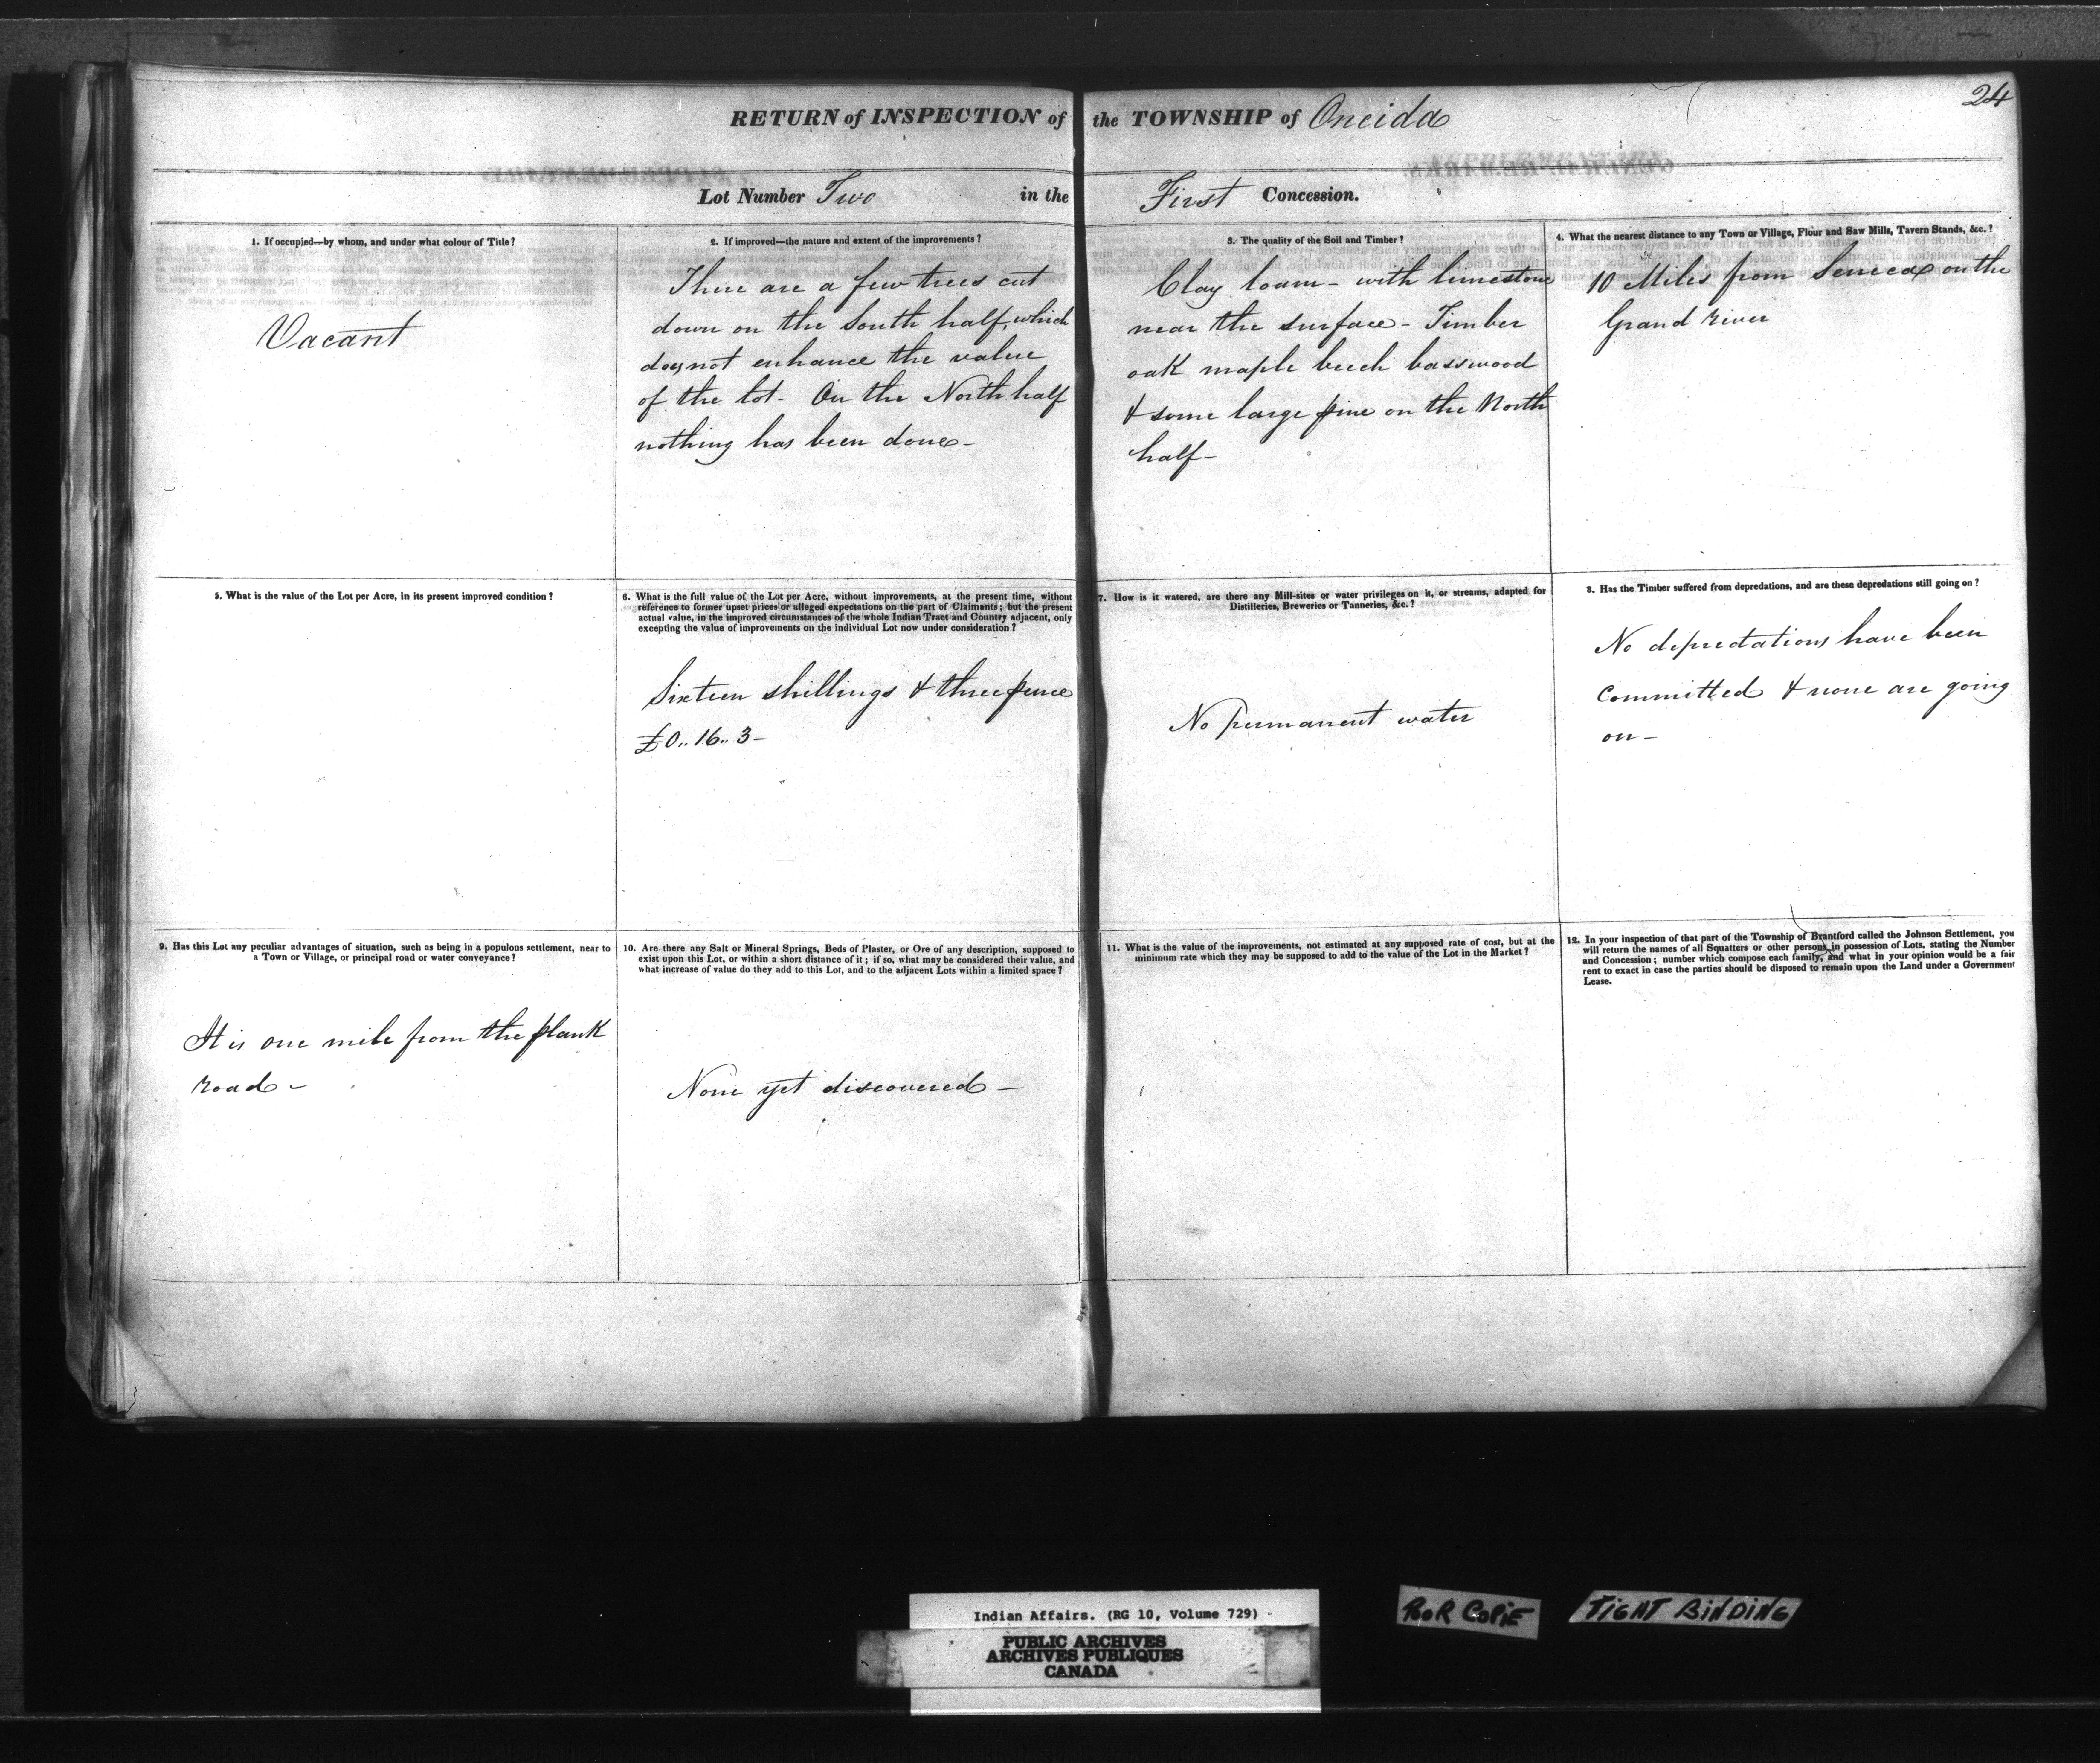 24
RETURN of INSPECTION of the TOWNSHIP of Oneida
Lot Number Two in the First Concession.
1. If occupied—by whom, and under what colour of Title?
Vacant
2. If improved—the nature and extent of the improvements?
There are a few trees cut
down on the South half, which
does not enhance the value
of the lot. On the North half
nothing has been done -
3. The quality of the Soil and Timber?
Clay loam - with limestone
near the surface - Timber
oak maple beech basswood
& some large pine on the North
half -
4. What the nearest distance to any Town or Village, Flour and Saw Mills, Tavern Stands, &c.?
10 Miles from Seneca on the
Grand River
5. What is the value of the Lot per Acre, in its present improved condition?
6. What is the full value of the Lot per Acre, without improvements, at the present time, without
reference to former upset prices or alleged expectations on the part of Claimants; but the present
actual value, in the improved circumstances of the whole Indian Tract and Country adjacent, only
excepting the value of improvements on the individual Lot now under consideration?
Sixteen shillings & three pence
£0.. 16.. 3 -
7. How is it watered, are there any Mill-sites or water privileges on it, or streams, adapted for
Distilleries, Breweries or Tanneries, &c.?
No permanent water
8. Has the Timber suffered from depredations, and are these depredations still going on?
No depredations have been
committed & none are going
on -
9. Has this Lot any peculiar advantages of situation, such as being in a populous settlement, near to
a Town or Village, or principal road or water conveyance?
It is one mile from the plank
road -
10. Are there any Salt or Mineral Springs, Beds of Plaster, or Ore of any description, supposed to
exist upon this Lot, or within a short distance of it; if so, what may be considered their value, and
what increase of value do they add to this Lot, and to the adjacent Lots within a limited space?
None yet discovered -
11. What is the value of the improvements, not estimated at any supposed rate of cost, but at the
minimum rate which they may be supposed to add to the value of the Lot in the Market?
12. In your inspection of that part of the Township of Brantford called the Johnson Settlement, you
will return the names of all Squatters or other persons in possession of Lots, stating the Number
and Concession; number which compose each family, and what in your opinion would be a fair
rent to exact in case the parties should be disposed to remain upon the Land under a Government
Lease.
Indian Affairs. (RG 10, Volume 729)
PUBLIC ARCHIVES
ARCHIVES PUBLIQUES
CANADA
POOR COPIE
TIGHT BINDING